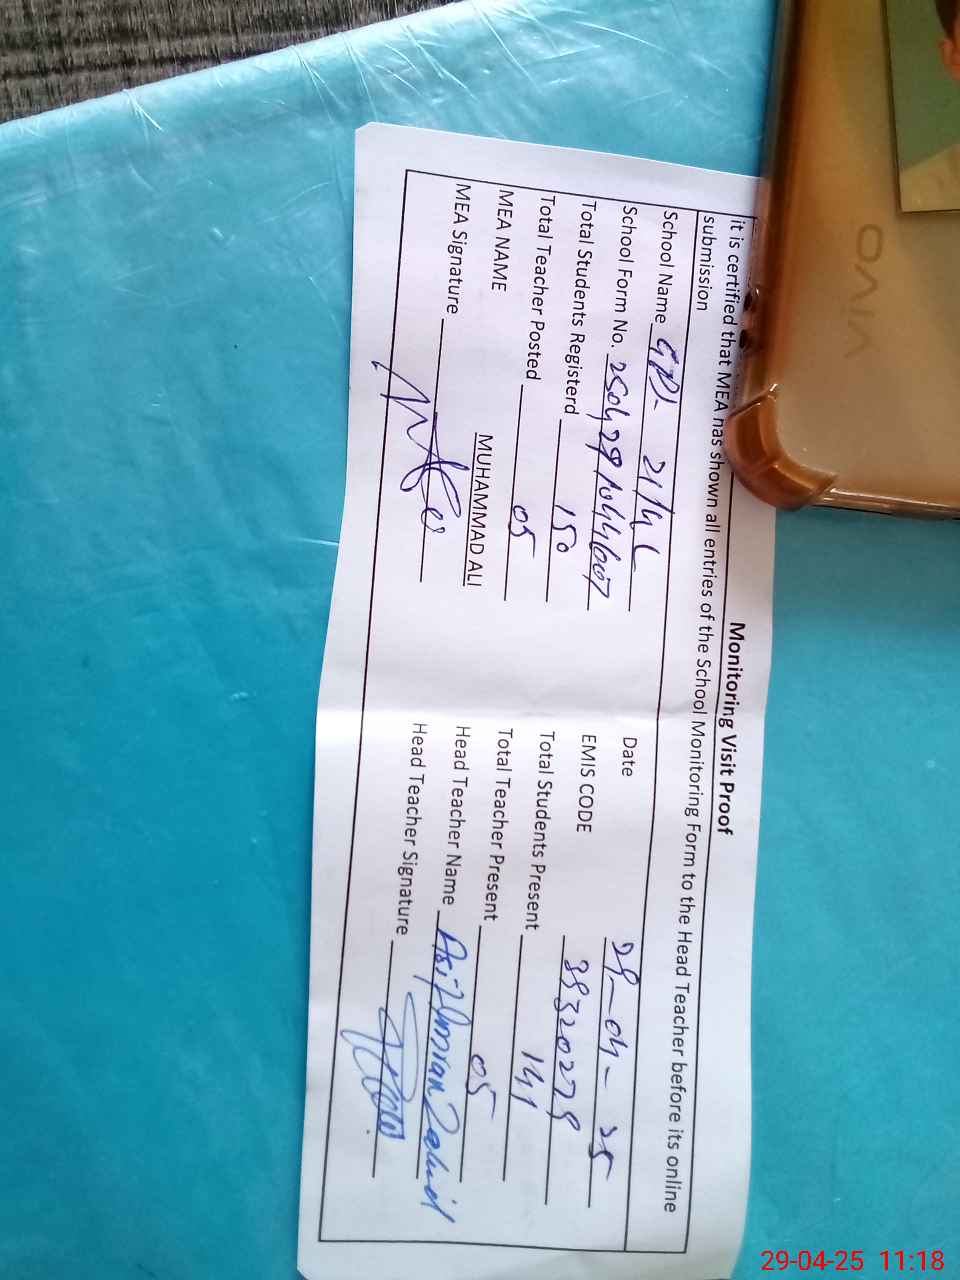 Monitoring Visit Proof
it is certified that MEA has shown all entries of the School Monitoring Form to the Head Teacher before its online
submission
School Name GPS 21/4L
School Form No. 250429 Date 29-04-25
Total Students Registerd 150 EMIS CODE
Total Teacher Posted 05 Total Students Present 141
MEA NAME MUHAMMAD ALI Total Teacher Present 05
MEA Signature Head Teacher Name Asif Hussian Zahid
Head Teacher Signature
vivo
29-04-25 11:18